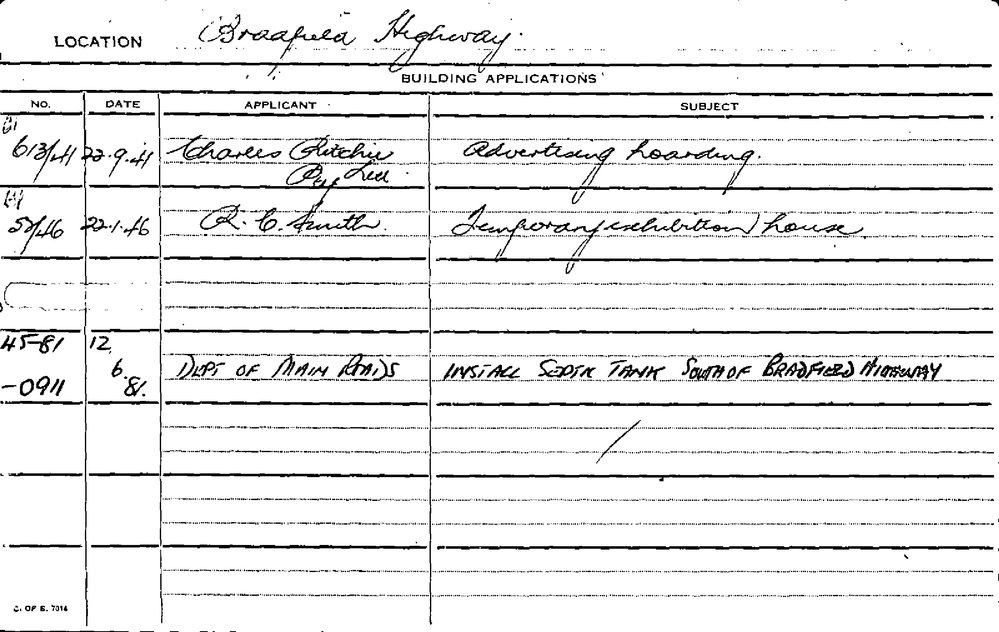 LOCATION Bradfield Highway.
BUILDING APPLICATIONS
NO. DATE APPLICANT SUBJECT
613/41 22.9.41 Charles Ritchie Advertising hoarding.
Pty Ltd.
52/46 22.1.46 R. C. Smith. Temporary exhibition house.
45-81 12
6. DEPT OF MAIN ROADS INSTALL SEPTIC TANK SOUTH OF BRADFIELD HIGHWAY
-0911 81.
C. OF S. 7014